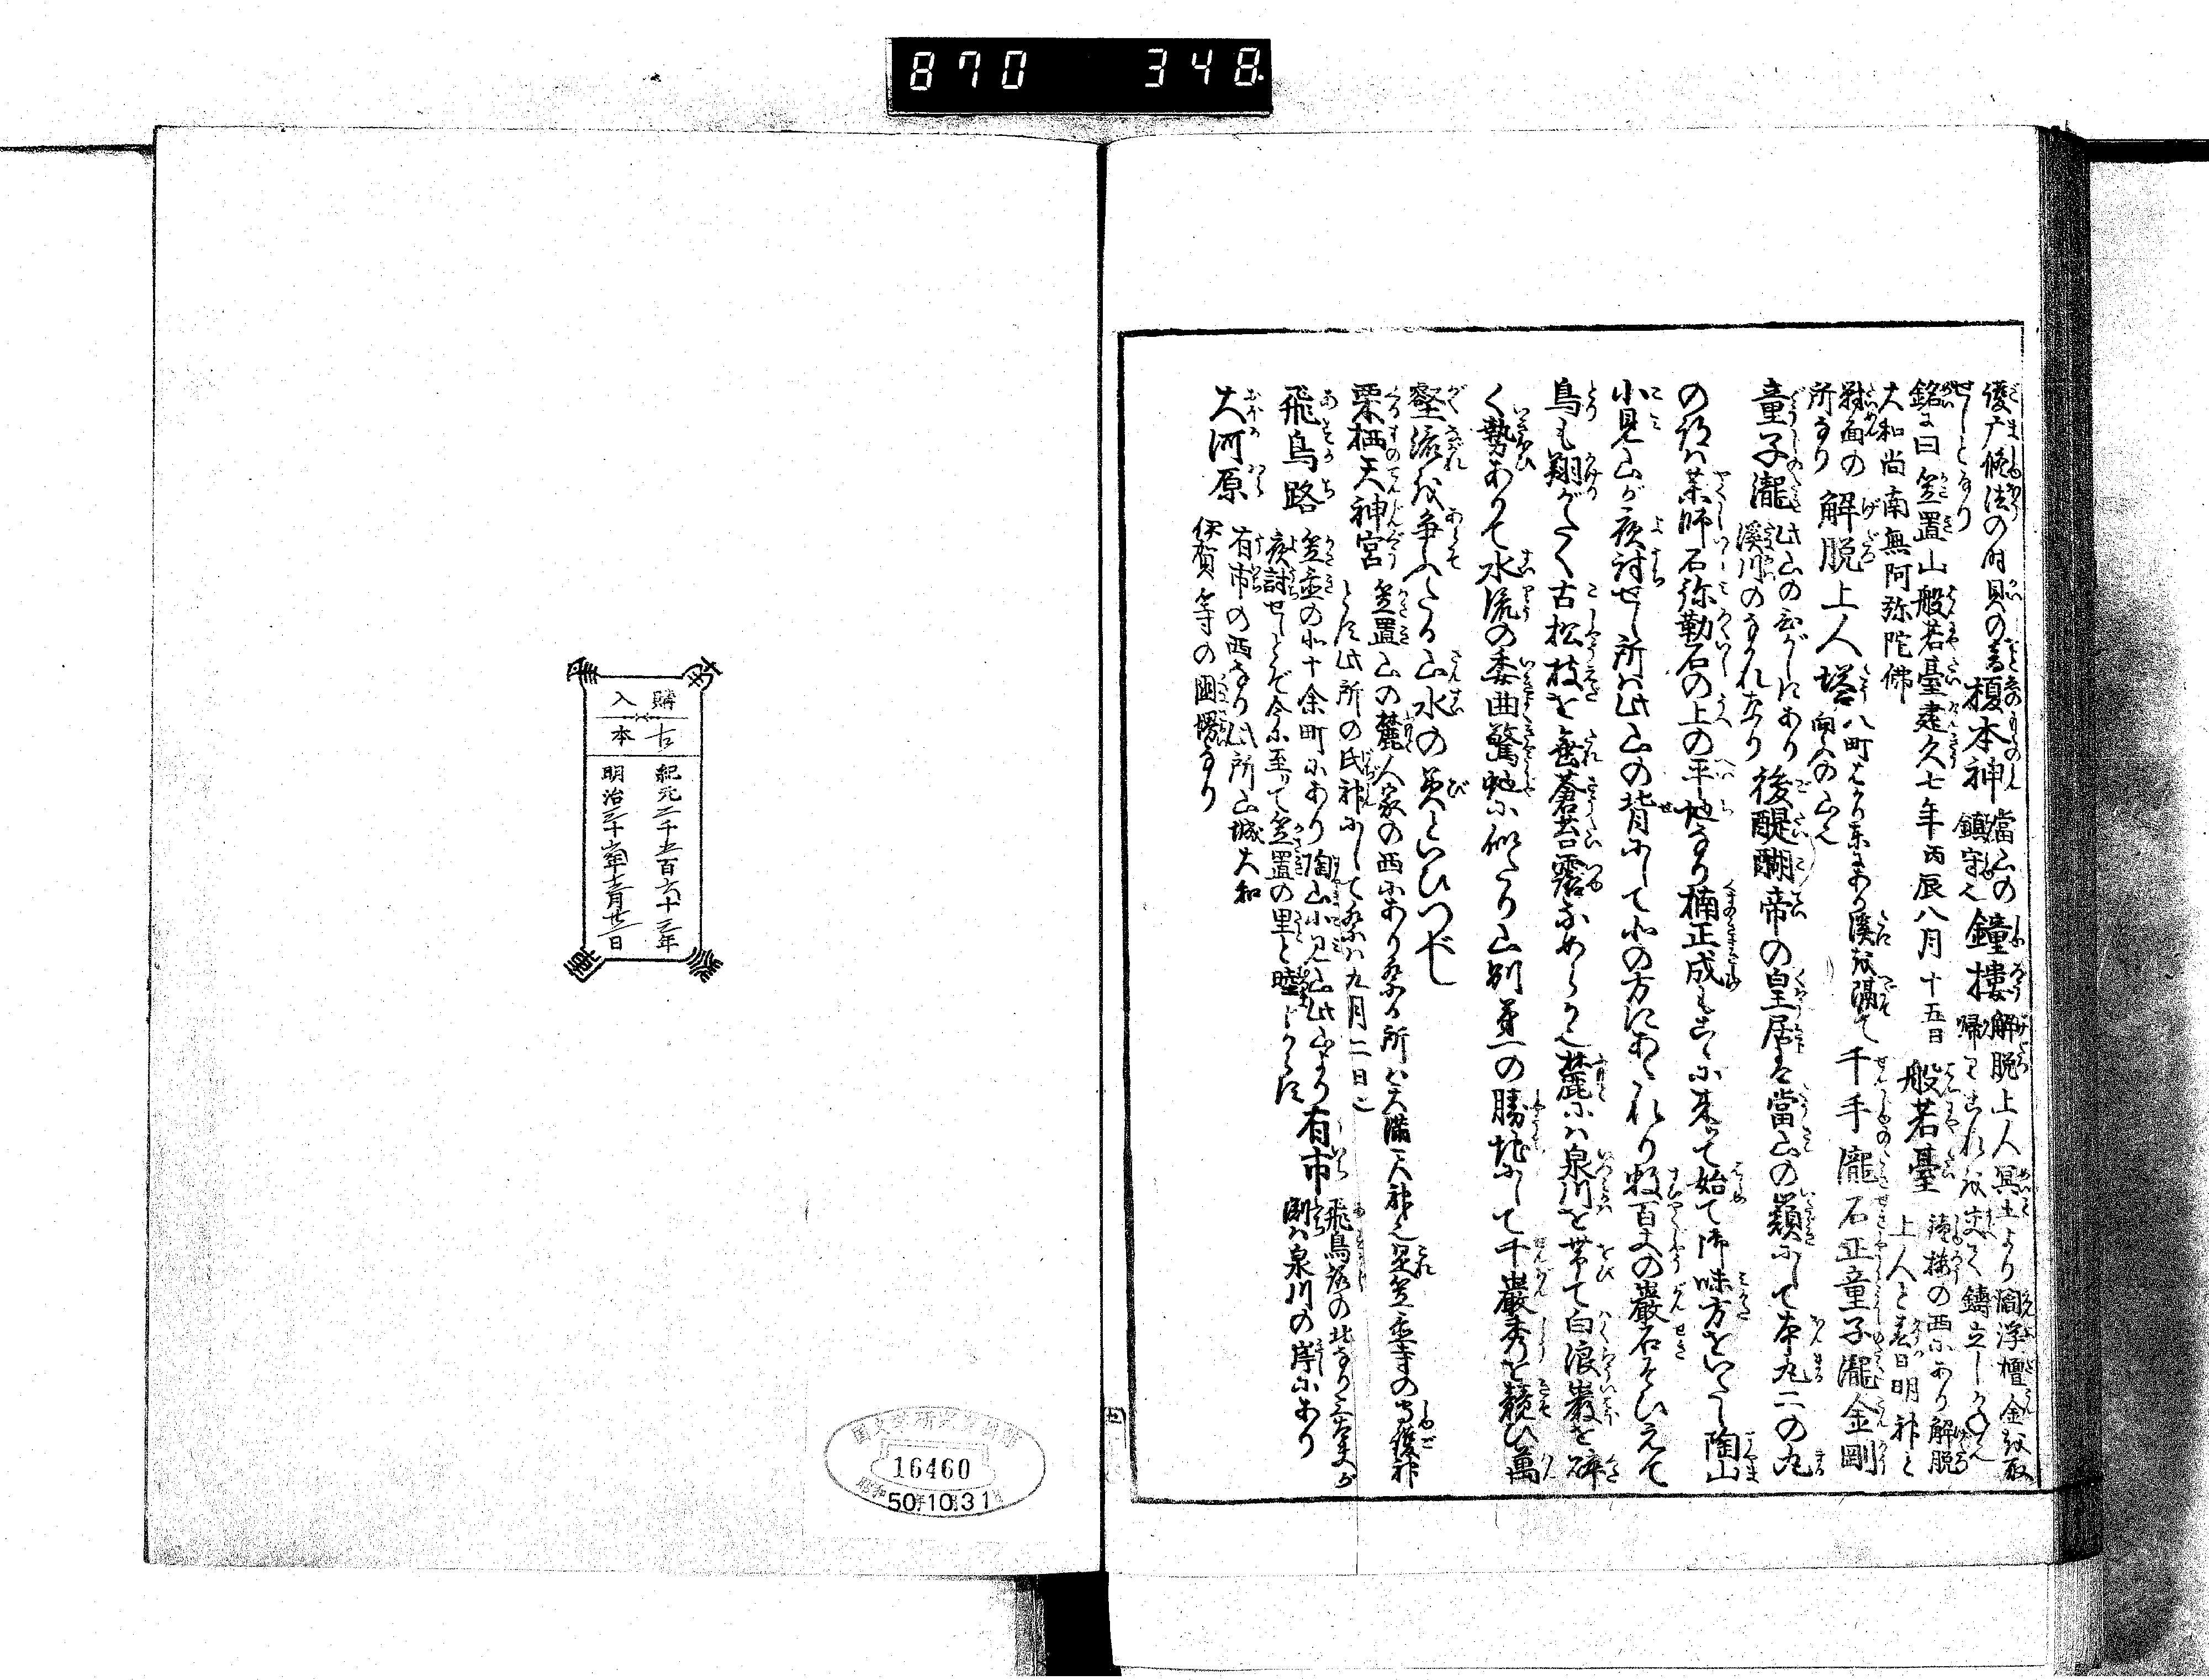 870 348
護广修法の时貝の音
せしとなり
榎本神
當山の
鎮守也
鐘樓
解脱上人冥土より閻浮檀金を取
帰りこれを交て鑄立しかね也
銘に曰笠置山般若臺建久七年丙辰八月十五日
大和尚南無阿弥陀佛
般若臺
鐘楼の西にあり解脱
上人と春日明神と
對面の
所なり
解脱上人塔
八町はかり東にあり溪を隔て
向の山也
千手瀧
石正童子瀧
金剛
童子瀧
此山の
溪川のながれなり
後醍醐帝の皇居は當山の巓にして本丸二の丸
の跡は薬師石弥勒石の上の平地なり楠正成もこゝに来つて始て御味方をいたし陶山
小見山が夜討せし所は此山の背にして北の方にあたれり数百丈の巖石そびえて
鳥も翔がたく古松枝を垂蒼苔露なめらか也麓には泉川を帯て白浪巖を砕
く勢ありて水流の委曲驚蛇に似たり山州第一の勝地にして千巖秀を競ひ萬
壑流を争ふたる山水の美といひつべし
栗栖天神宮
笠置山の麓人家の西にあり祭る所は天満天神也是笠置寺の守護神
とす此所の氏神にして祭は九月二日也
飛鳥路
笠置の北十余町にあり陶山小見山此山より
夜討せしとぞ今に至つて笠置の里と睦しからず
有市
飛鳥路の北なり
渕は泉川の岸にあり
大河原
有市の西なり此所山城大和
伊賀等の国堺なり
購入
古本
紀元二千五百六十三年
明治三十六年十二月廿二日
16460
昭和
50年10月31